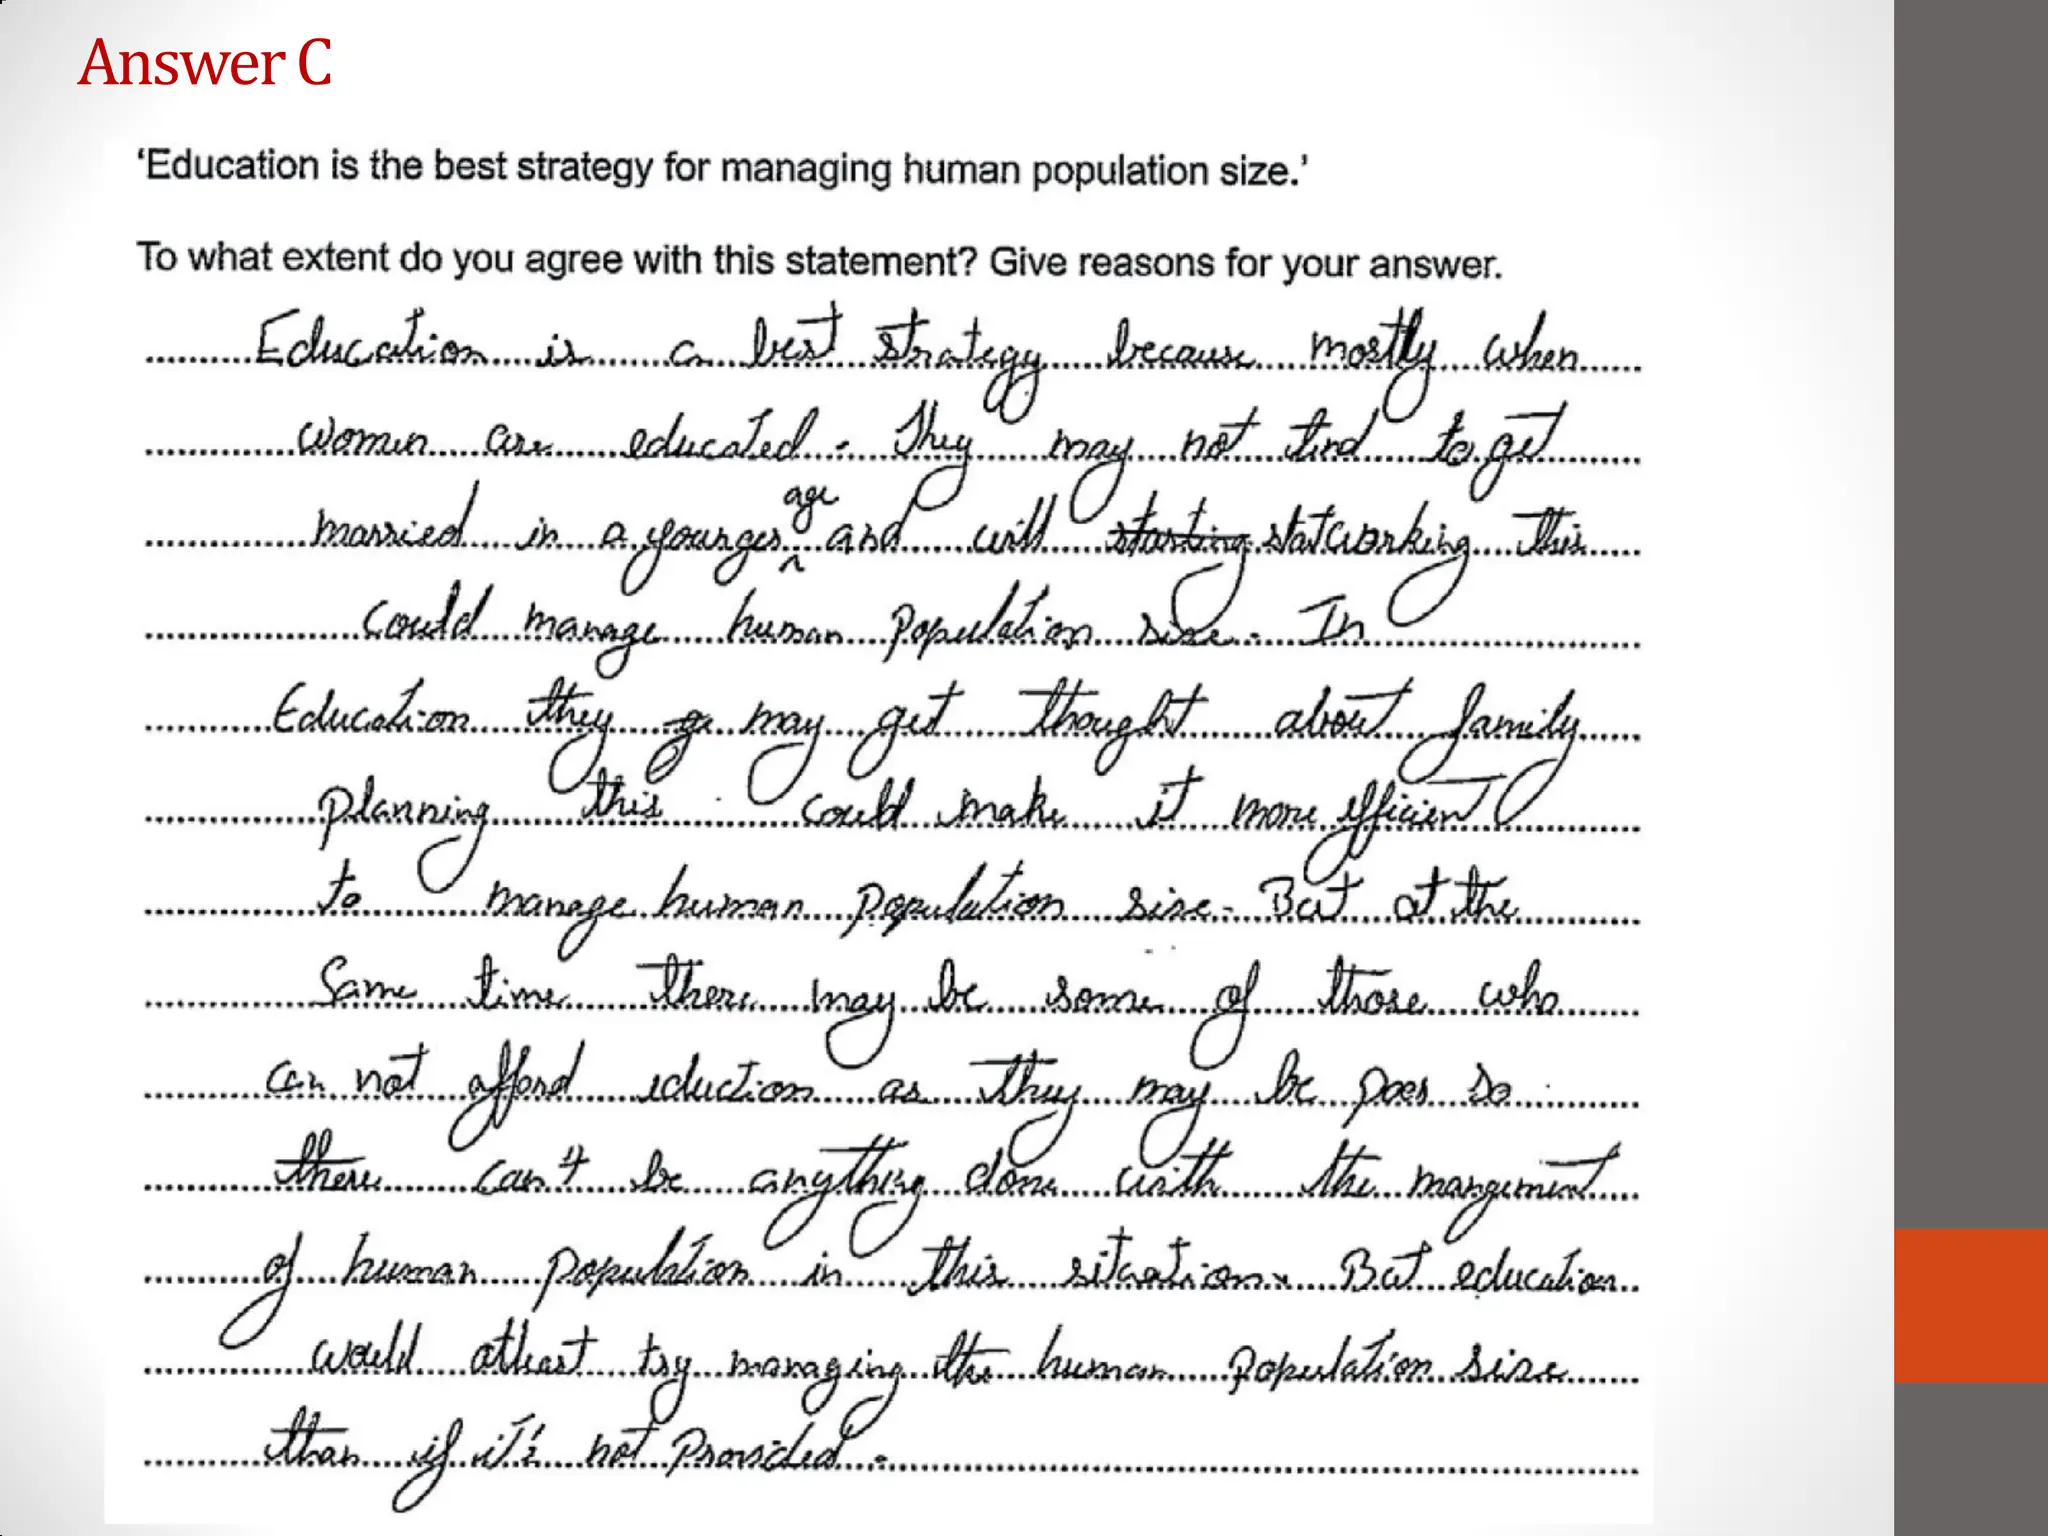 Answer C
'Education is the best strategy for managing human population size.'
To what extent do you agree with this statement? Give reasons for your answer.
Education is a best strategy because mostly when
women are educated. They may not tend to get
married in a younger age and will starting statworking this
could manage human population size. In
Education they ge may get thought about family
planning this could make it more efficient
to manage human population size. But at the
Same time there may be some of those who
can not afford eduction as they may be poor so
there can't be anything done with the mangement
of human population in this situation. But education
would atleast try managing the human population size
than if it's not Provided.